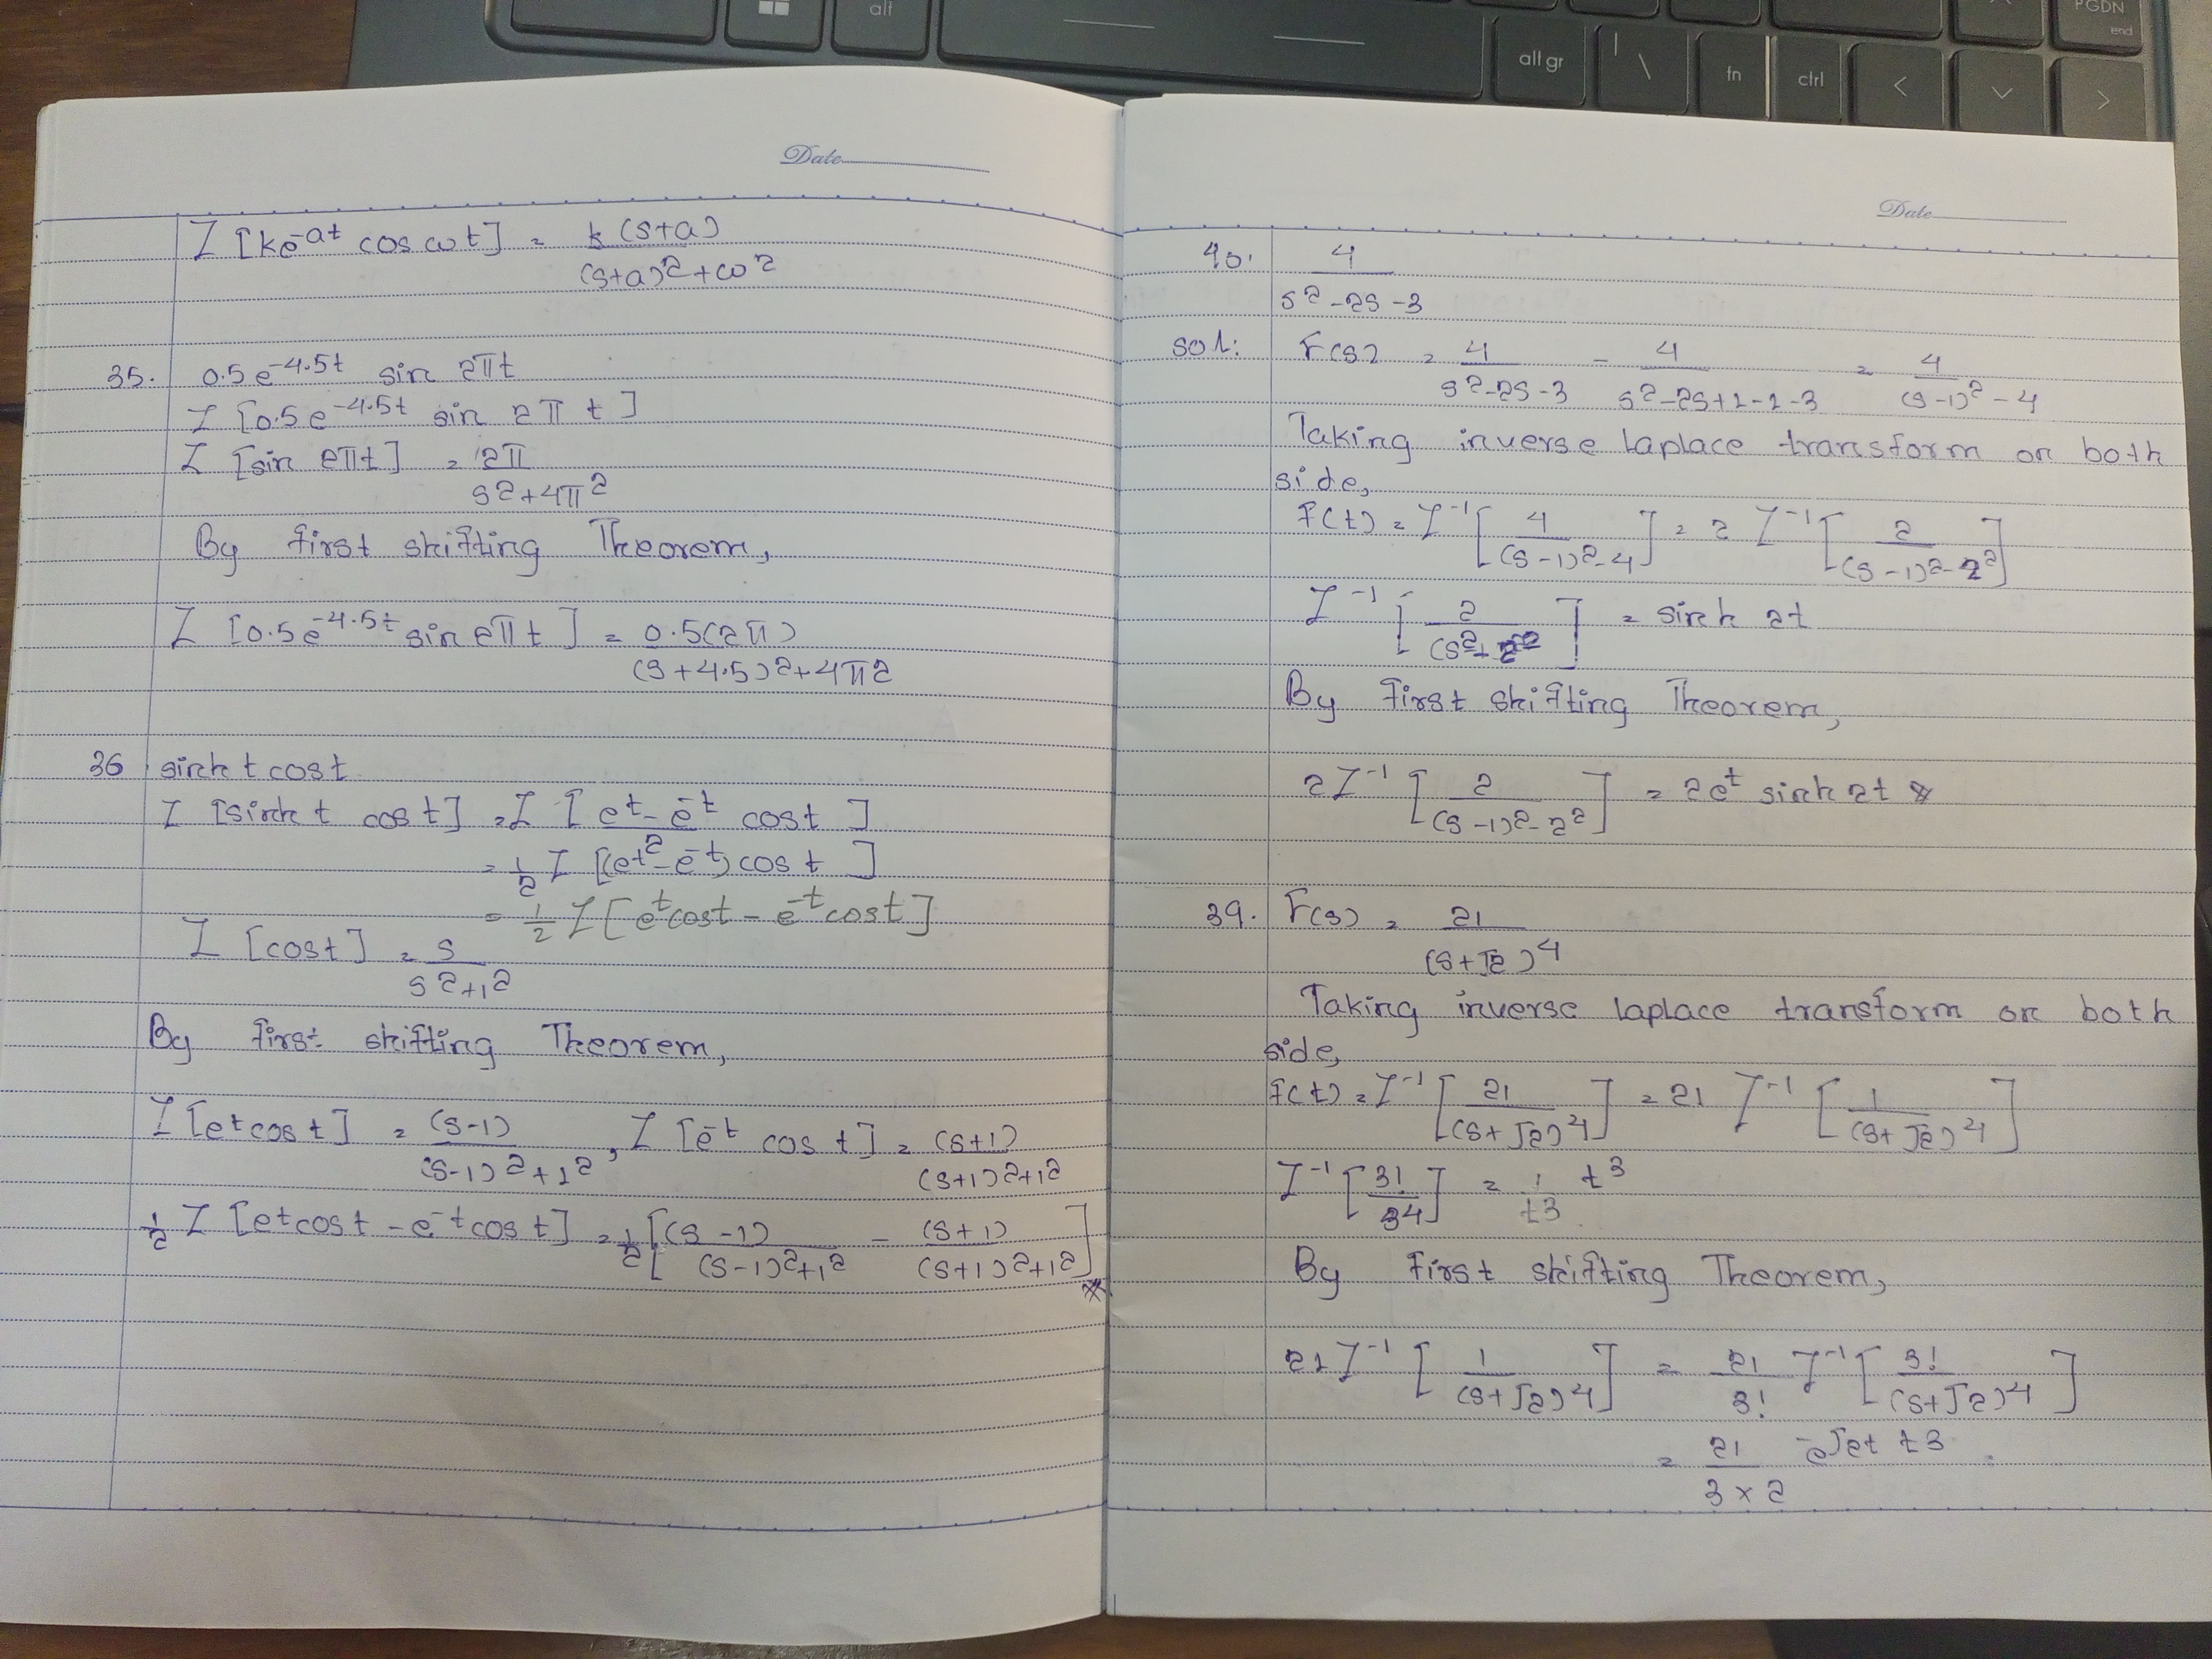 alt
PGDN
end
all gr
\
fn
ctrl
<
>
Date
ℒ [ke^-at cos ωt] = k(s+a) / (s+a)²+ω²
35. 0.5e^-4.5t sin 2πt
ℒ [0.5e^-4.5t sin 2πt]
ℒ [sin 2πt] = 2π / s²+4π²
By first shifting Theorem,
ℒ [0.5e^-4.5t sin 2πt] = 0.5(2π) / (s+4.5)²+4π²
36 sinh t cos t
ℒ [sinh t cos t] = ℒ [e^t - e^-t / 2 cos t]
= 1/2 ℒ [(e^t - e^-t) cos t]
= 1/2 ℒ [e^t cos t - e^-t cos t]
ℒ [cos t] = s / s²+1²
By first shifting Theorem,
ℒ [e^t cos t] = (s-1) / (s-1)²+1², ℒ [e^-t cos t] = (s+1) / (s+1)²+1²
1/2 ℒ [e^t cos t - e^-t cos t] = 1/2 [(s-1) / (s-1)²+1² - (s+1) / (s+1)²+1²]
Date
40. 4 / s²-2s-3
sol: F(s) = 4 / s²-2s-3 = 4 / s²-2s+1-1-3 = 4 / (s-1)²-4
Taking inverse laplace transform on both
side,
f(t) = ℒ^-1 [4 / (s-1)²-4] = 2 ℒ^-1 [2 / (s-1)²-2²]
ℒ^-1 [2 / (s²-2²] = sinh 2t
By first shifting Theorem,
2ℒ^-1 [2 / (s-1)²-2²] = 2e^t sinh 2t
39. F(s) = 21 / (s+√2)^4
Taking inverse laplace transform on both
side,
f(t) = ℒ^-1 [21 / (s+√2)^4] = 21 ℒ^-1 [1 / (s+√2)^4]
ℒ^-1 [3! / s^4] = 1/t3 t³
By first shifting Theorem,
21 ℒ^-1 [1 / (s+√2)^4] = 21/3! ℒ^-1 [3! / (s+√2)^4]
= 21 / 3×2 e^-√2t t3